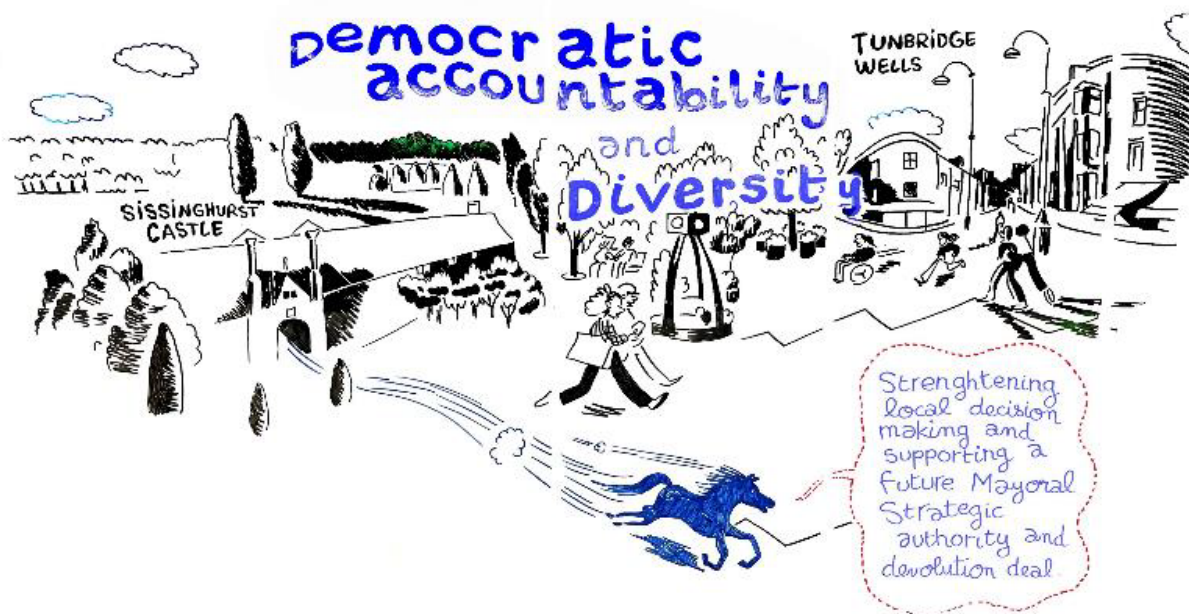 Democratic
accountability
and
Diversity
TUNBRIDGE
WELLS
SISSINGHURST
CASTLE
Strenghtening
local decision
making and
supporting a
future Mayoral
Strategic
authority and
devolution deal.